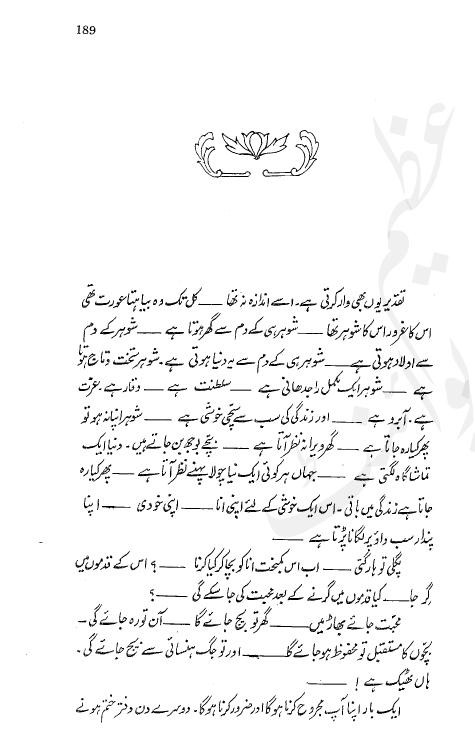 189
تقدیر یوں بھی وار کرتی ہے۔ اسے اندازہ نہ تھا ــــ کل تک وہ بیاہتا عورت تھی
اس کا غرور اس کا شوہر تھا ــــ شوہر ہی کے دم سے گھر ہوتا ہے ــــ شوہر کے دم
سے اولاد ہوتی ہے ــــ شوہر ہی کے دم سے یہ دنیا ہوتی ہے۔ شوہر تخت و تاج ہوتا
ہے ــــ شوہر ایک مکمل راجدھانی ہے ــــ سلطنت ہے ــــ وقار ہے۔ عزت
ہے۔ آبرو ہے ــــ اور زندگی کی سب سے سچی خوشی ہے ــــ شوہر اپنا نہ ہو تو
پھر کیا رہ جاتا ہے ــــ گھر ویرانہ نظر آتا ہے ــــ بچے بوجھ بن جاتے ہیں۔ دنیا ایک
تماشا گاہ لگتی ہے ــــ جہاں ہر کوئی ایک نیا چولا پہنے نظر آتا ہے ــــ پھر کیا رہ
جاتا ہے زندگی میں باقی۔ اس ایک خوشی کے لئے اپنی انا ــــ اپنی خودی ــــ اپنا
پندار سب داؤ پر لگانا پڑتا ہے ــــ
پگلی تو ہار گئی ــــ اب اس کمبخت انا کو بچا کر کیا کرنا ــــ ؟ اس کے قدموں میں
گر جا ــــ کیا قدموں میں گرنے کے بعد محبت کی جا سکے گی ــــ ؟
محبت جائے بھاڑ میں ــــ گھر تو بچ جائے گا ــــ آن تو رہ جائے گی۔
بچوں کا مستقبل تو محفوظ ہو جائے گا ــــ اور تو جگ ہنسائی سے بچ جائے گی۔
ہاں ٹھیک ہے ! ــــ
ایک بار اپنا آپ مجروح کرنا ہوگا اور ضرور کرنا ہوگا۔ دوسرے دن دفتر ختم ہونے